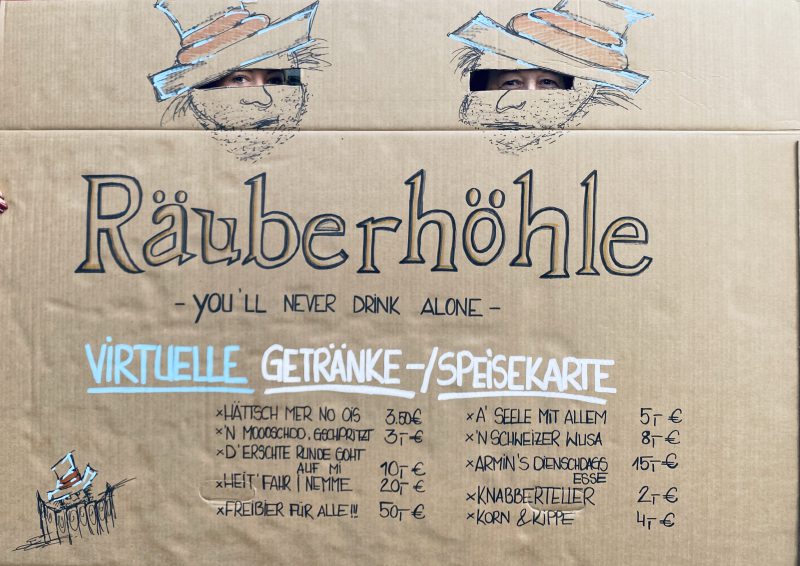 Räuberhöhle
- YOU'LL NEVER DRINK ALONE -
VIRTUELLE GETRÄNKE-/SPEISEKARTE
×HÄTTSCH MER NO OIS 3.50€
×'N MOOOSCHOD, GSCHPRITZT 3,-€
×D'ERSCHTE RUNDE GOHT
AUF MI 10,-€
×HEIT' FAHR I NEMME 20,-€
×FREIBIER FÜR ALLE!!! 50,-€
×A' SEELE MIT ALLEM 5,-€
×'N SCHWEIZER WUSA 8,-€
×ARMIN'S DIENSCHDAGS 15,-€
ESSE
×KNABBERTELLER 2,-€
×KORN & KIPPE 4,-€